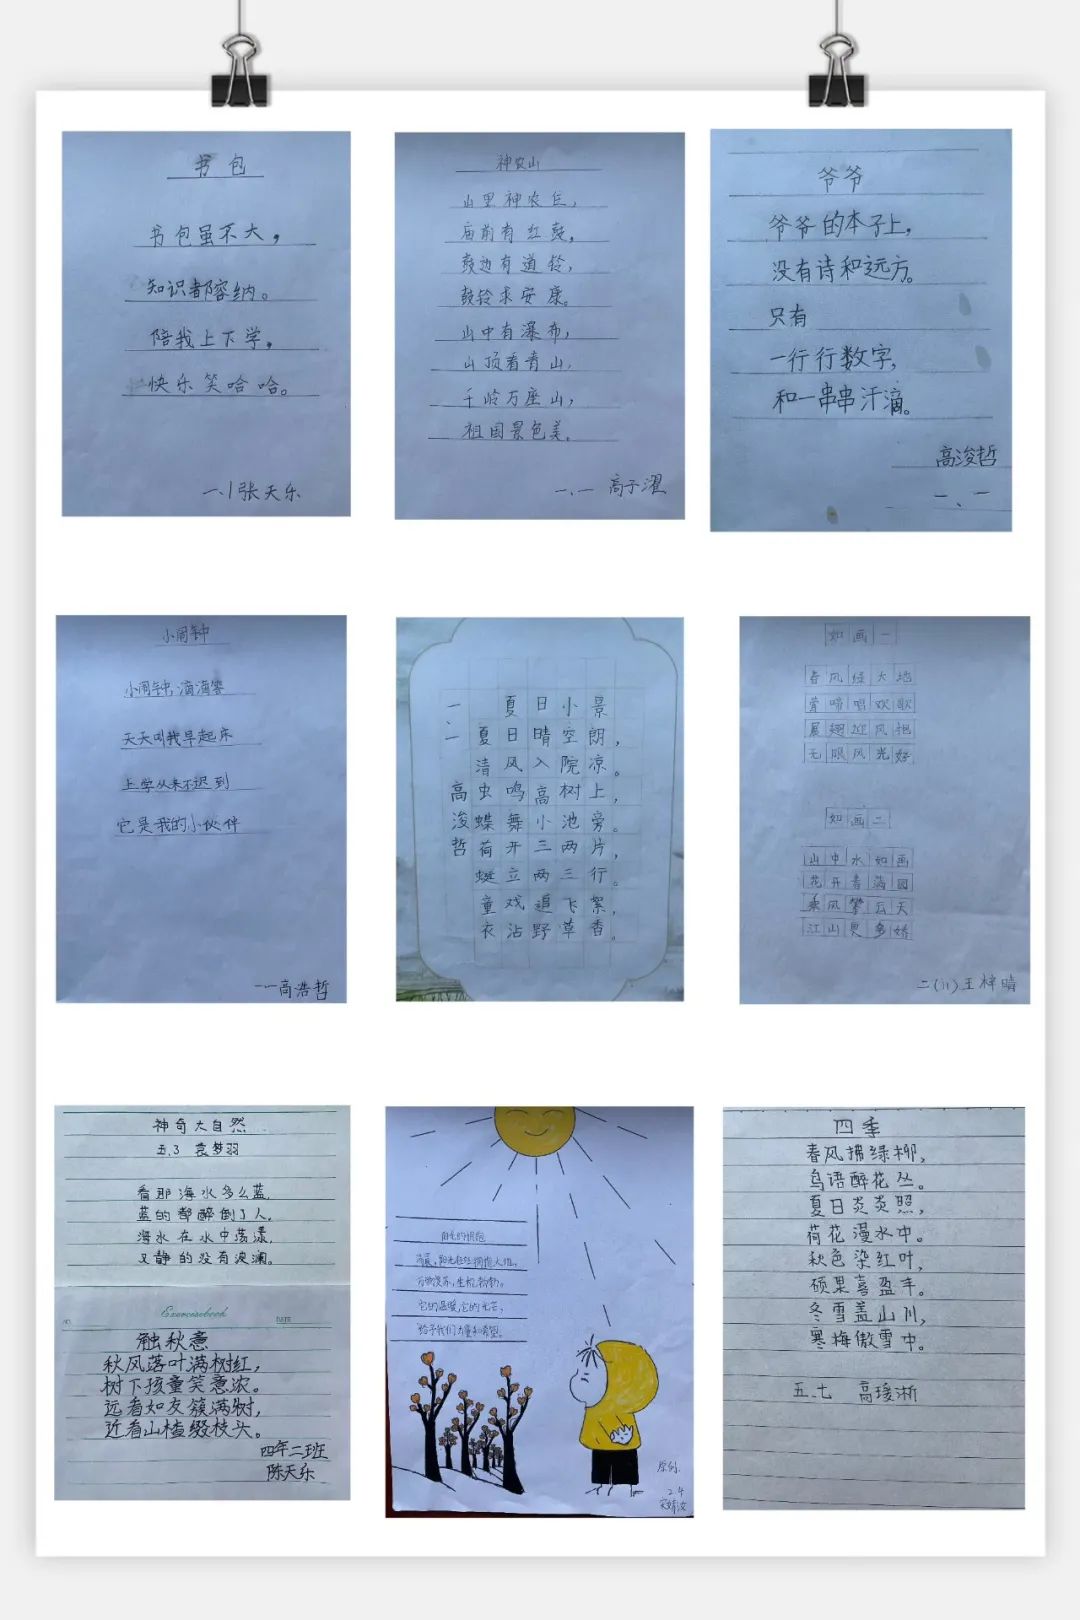 书包
书包虽不大，
知识都容纳。
陪我上下学，
快乐笑哈哈。
一、1 张天乐
神农山
山里神农丘，
庙前有红鼓，
鼓边有道铃，
鼓铃求安康。
山中有瀑布，
山顶看青山，
千岭万座山，
祖国景色美。
一、一 高子濯
爷爷
爷爷的本子上，
没有诗和远方。
只有
一行行数字，
和一串串汗滴。
高浚哲
一、一
小闹钟
小闹钟，滴滴答
天天叫我早起床
上学从来不迟到
它是我的小伙伴
一一高浩哲
夏日小景
夏日晴空朗，
清风入院凉。
虫鸣高树上，
蝶舞小池旁。
荷开三两片，
蜓立两三行。
童戏追飞絮，
衣沾野草香。
一、一 高浚哲
如画一
春风绿大地
莺啼唱欢歌
展翅迎风袍
无限风光好
如画二
山中水如画
花开春满园
乘风攀云天
江山更多娇
二(1)王梓晴
神奇大自然
五.3 袁梦羽
看那海水多么蓝，
蓝的都醉倒了人，
海水在水中荡漾，
又静的没有波澜。
Exercisebook
NO.
DATE
触秋意
秋风落叶满树红，
树下孩童笑意浓。
远看如友簇满树，
近看山楂缀枝头。
四年二班
陈天乐
阳光的拥抱
清晨，阳光轻轻拥抱大地，
万物复苏，生机勃勃。
它的温暖，它的光芒，
给予我们力量和希望。
原创
2.4
宋婧汝
四季
春风拂绿柳，
鸟语醉花丛。
夏日炎炎照，
荷花漫水中。
秋色染红叶，
硕果喜盈丰。
冬雪盖山川，
寒梅傲雪中。
五.七 高瑗淅